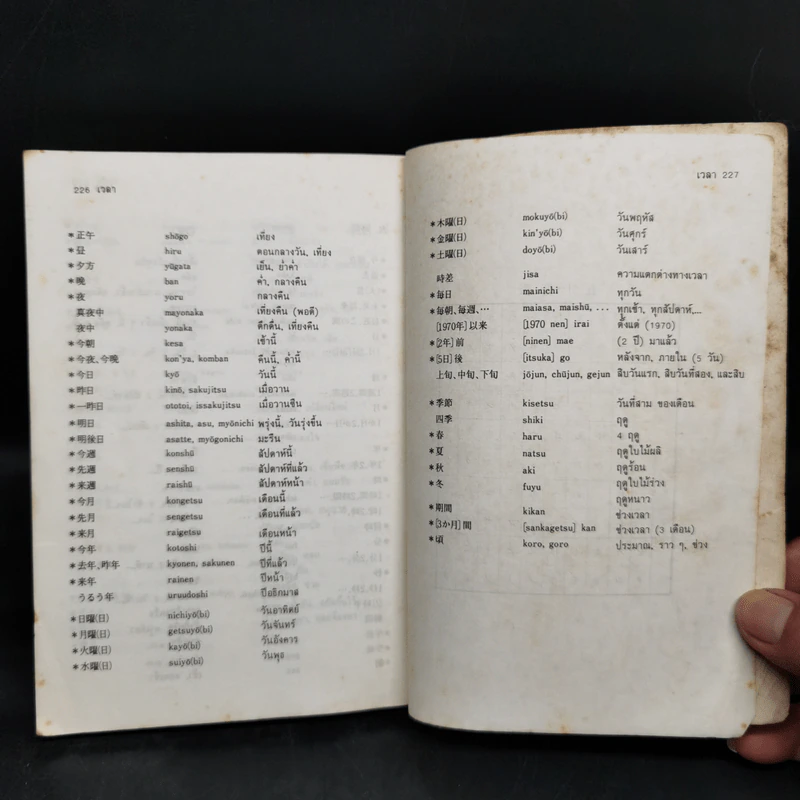 226 เวลา
*正午 shōgo เที่ยง
*昼 hiru ตอนกลางวัน, เที่ยง
*夕方 yūgata เย็น, ย่ำค่ำ
*晩 ban ค่ำ, กลางคืน
*夜 yoru กลางคืน
真夜中 mayonaka เที่ยงคืน (พอดี)
夜中 yonaka ดึกดื่น, เที่ยงคืน
*今朝 kesa เช้านี้
*今夜、今晩 kon'ya, komban คืนนี้, ค่ำนี้
*今日 kyō วันนี้
*昨日 kinō, sakujitsu เมื่อวาน
*一昨日 ototoi, issakujitsu เมื่อวานซืน
*明日 ashita, asu, myōnichi พรุ่งนี้, วันรุ่งขึ้น
*明後日 asatte, myōgonichi มะรืน
*今週 konshū สัปดาห์นี้
*先週 senshū สัปดาห์ที่แล้ว
*来週 raishū สัปดาห์หน้า
*今月 kongetsu เดือนนี้
*先月 sengetsu เดือนที่แล้ว
*来月 raigetsu เดือนหน้า
*今年 kotoshi ปีนี้
*去年、昨年 kyonen, sakunen ปีที่แล้ว
*来年 rainen ปีหน้า
うるう年 uruudoshi ปีอธิกมาส
*日曜(日) nichiyō(bi) วันอาทิตย์
*月曜(日) getsuyō(bi) วันจันทร์
*火曜(日) kayō(bi) วันอังคาร
*水曜(日) suiyō(bi) วันพุธ
เวลา 227
*木曜(日) mokuyō(bi) วันพฤหัส
*金曜(日) kin'yō(bi) วันศุกร์
*土曜(日) doyō(bi) วันเสาร์
時差 jisa ความแตกต่างทางเวลา
*毎日 mainichi ทุกวัน
*毎朝、毎週、… maiasa, maishū, ... ทุกเช้า, ทุกสัปดาห์,...
[1970年]以来 [1970 nen] irai ตั้งแต่ (1970)
*[2年]前 [ninen] mae (2 ปี) มาแล้ว
*[5日]後 [itsuka] go หลังจาก, ภายใน (5 วัน)
上旬、中旬、下旬 jōjun, chūjun, gejun สิบวันแรก, สิบวันที่สอง, และสิบ
วันที่สาม ของเดือน
*季節 kisetsu ฤดู
四季 shiki 4 ฤดู
*春 haru ฤดูใบไม้ผลิ
*夏 natsu ฤดูร้อน
*秋 aki ฤดูใบไม้ร่วง
*冬 fuyu ฤดูหนาว
*期間 kikan ช่วงเวลา
*[3か月]間 [sankagetsu] kan ช่วงเวลา (3 เดือน)
*頃 koro, goro ประมาณ, ราว ๆ, ช่วง